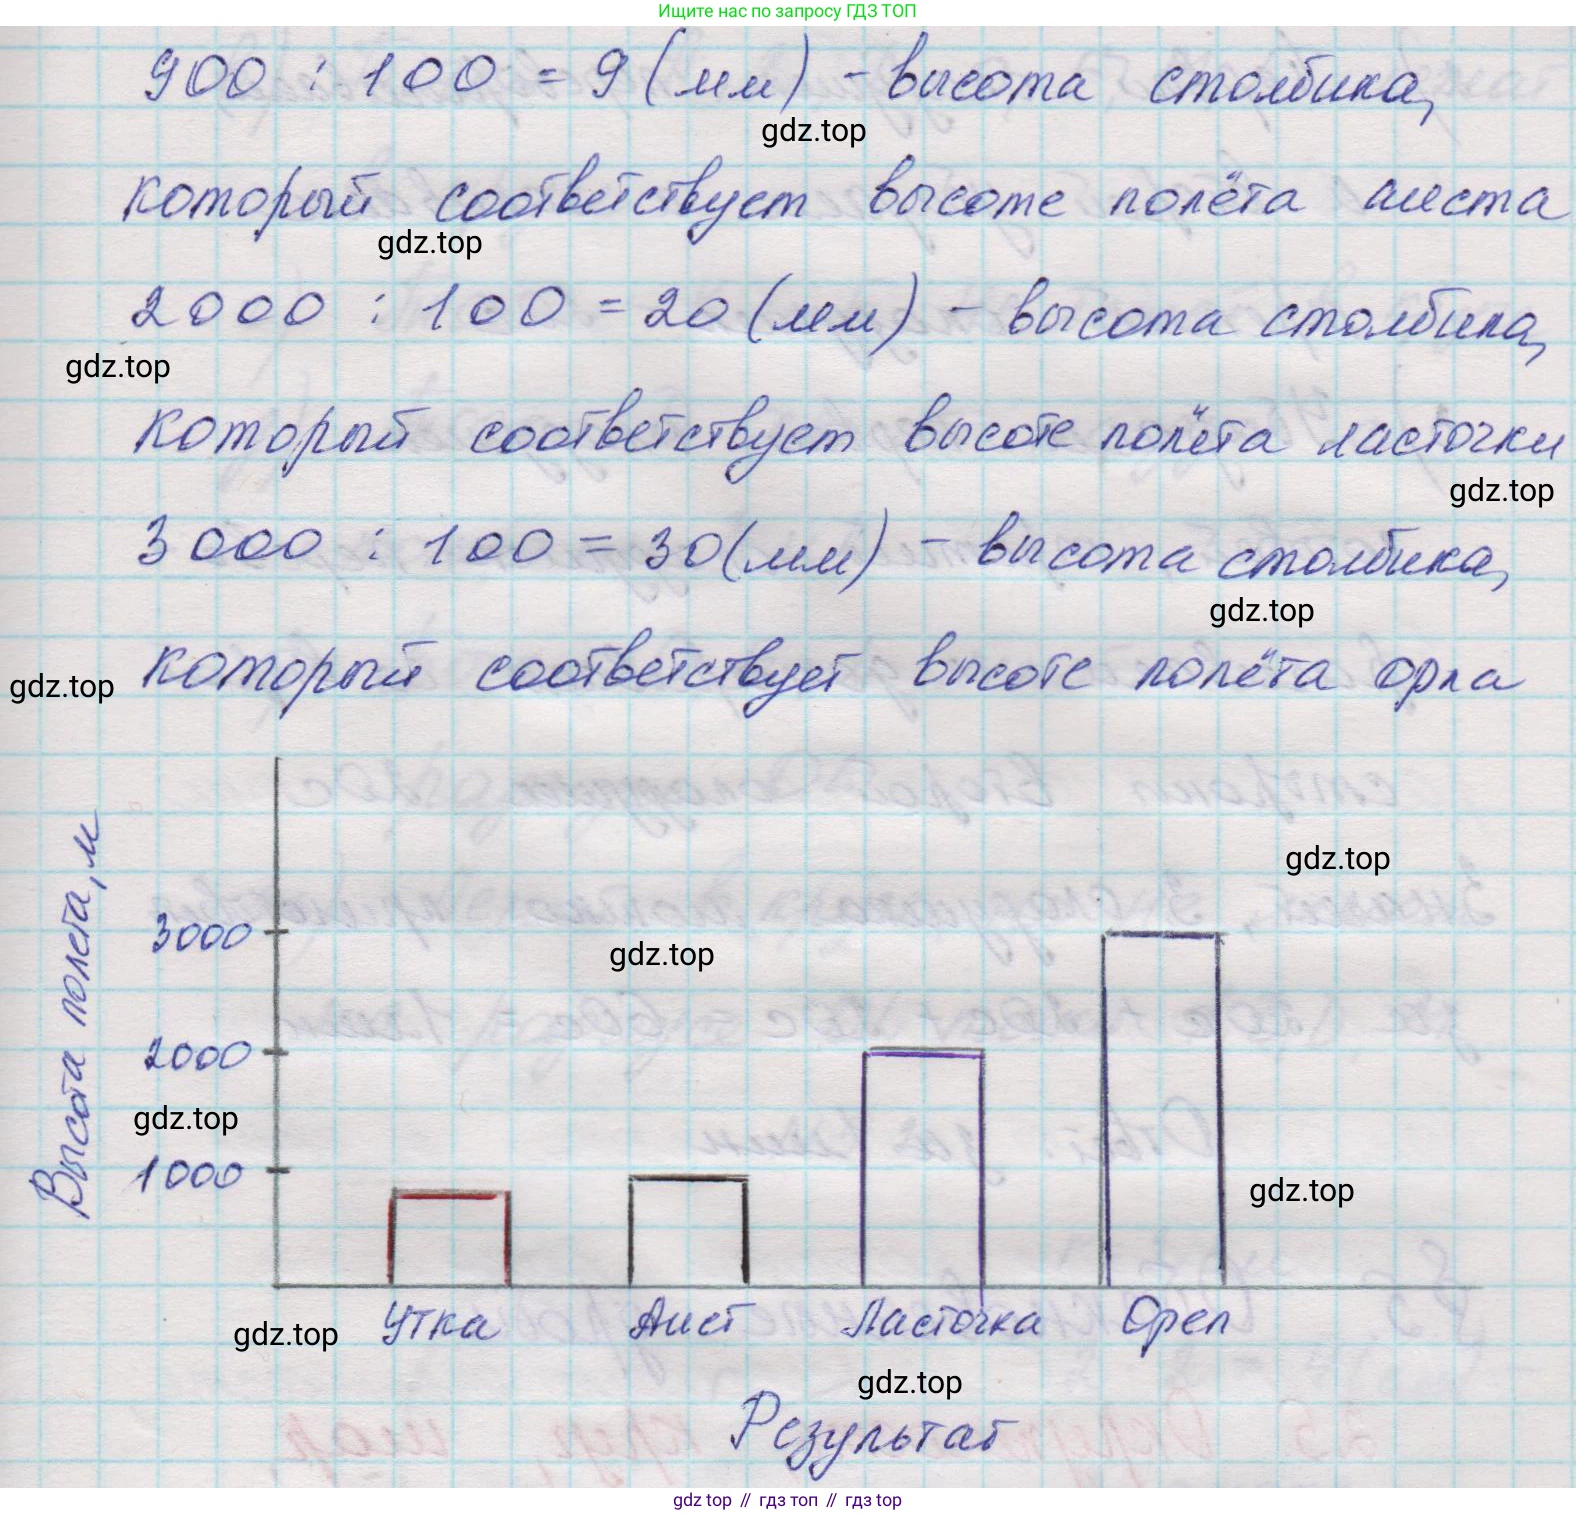 Ищите нас по запросу ГДЗ ТОП
900 : 100 = 9 (мм) - высота столбика,
gdz.top
который соответствует высоте полёта аиста
gdz.top
2000 : 100 = 20 (мм) - высота столбика,
gdz.top
который соответствует высоте полёта ласточки
gdz.top
3000 : 100 = 30 (мм) - высота столбика,
gdz.top
который соответствует высоте полёта орла
gdz.top
Высота полета, м
gdz.top
3000
gdz.top
2000
gdz.top
1000
gdz.top
Утка Аист Ласточка Орел
gdz.top
gdz.top
Результат
gdz top // гдз топ // гдз top